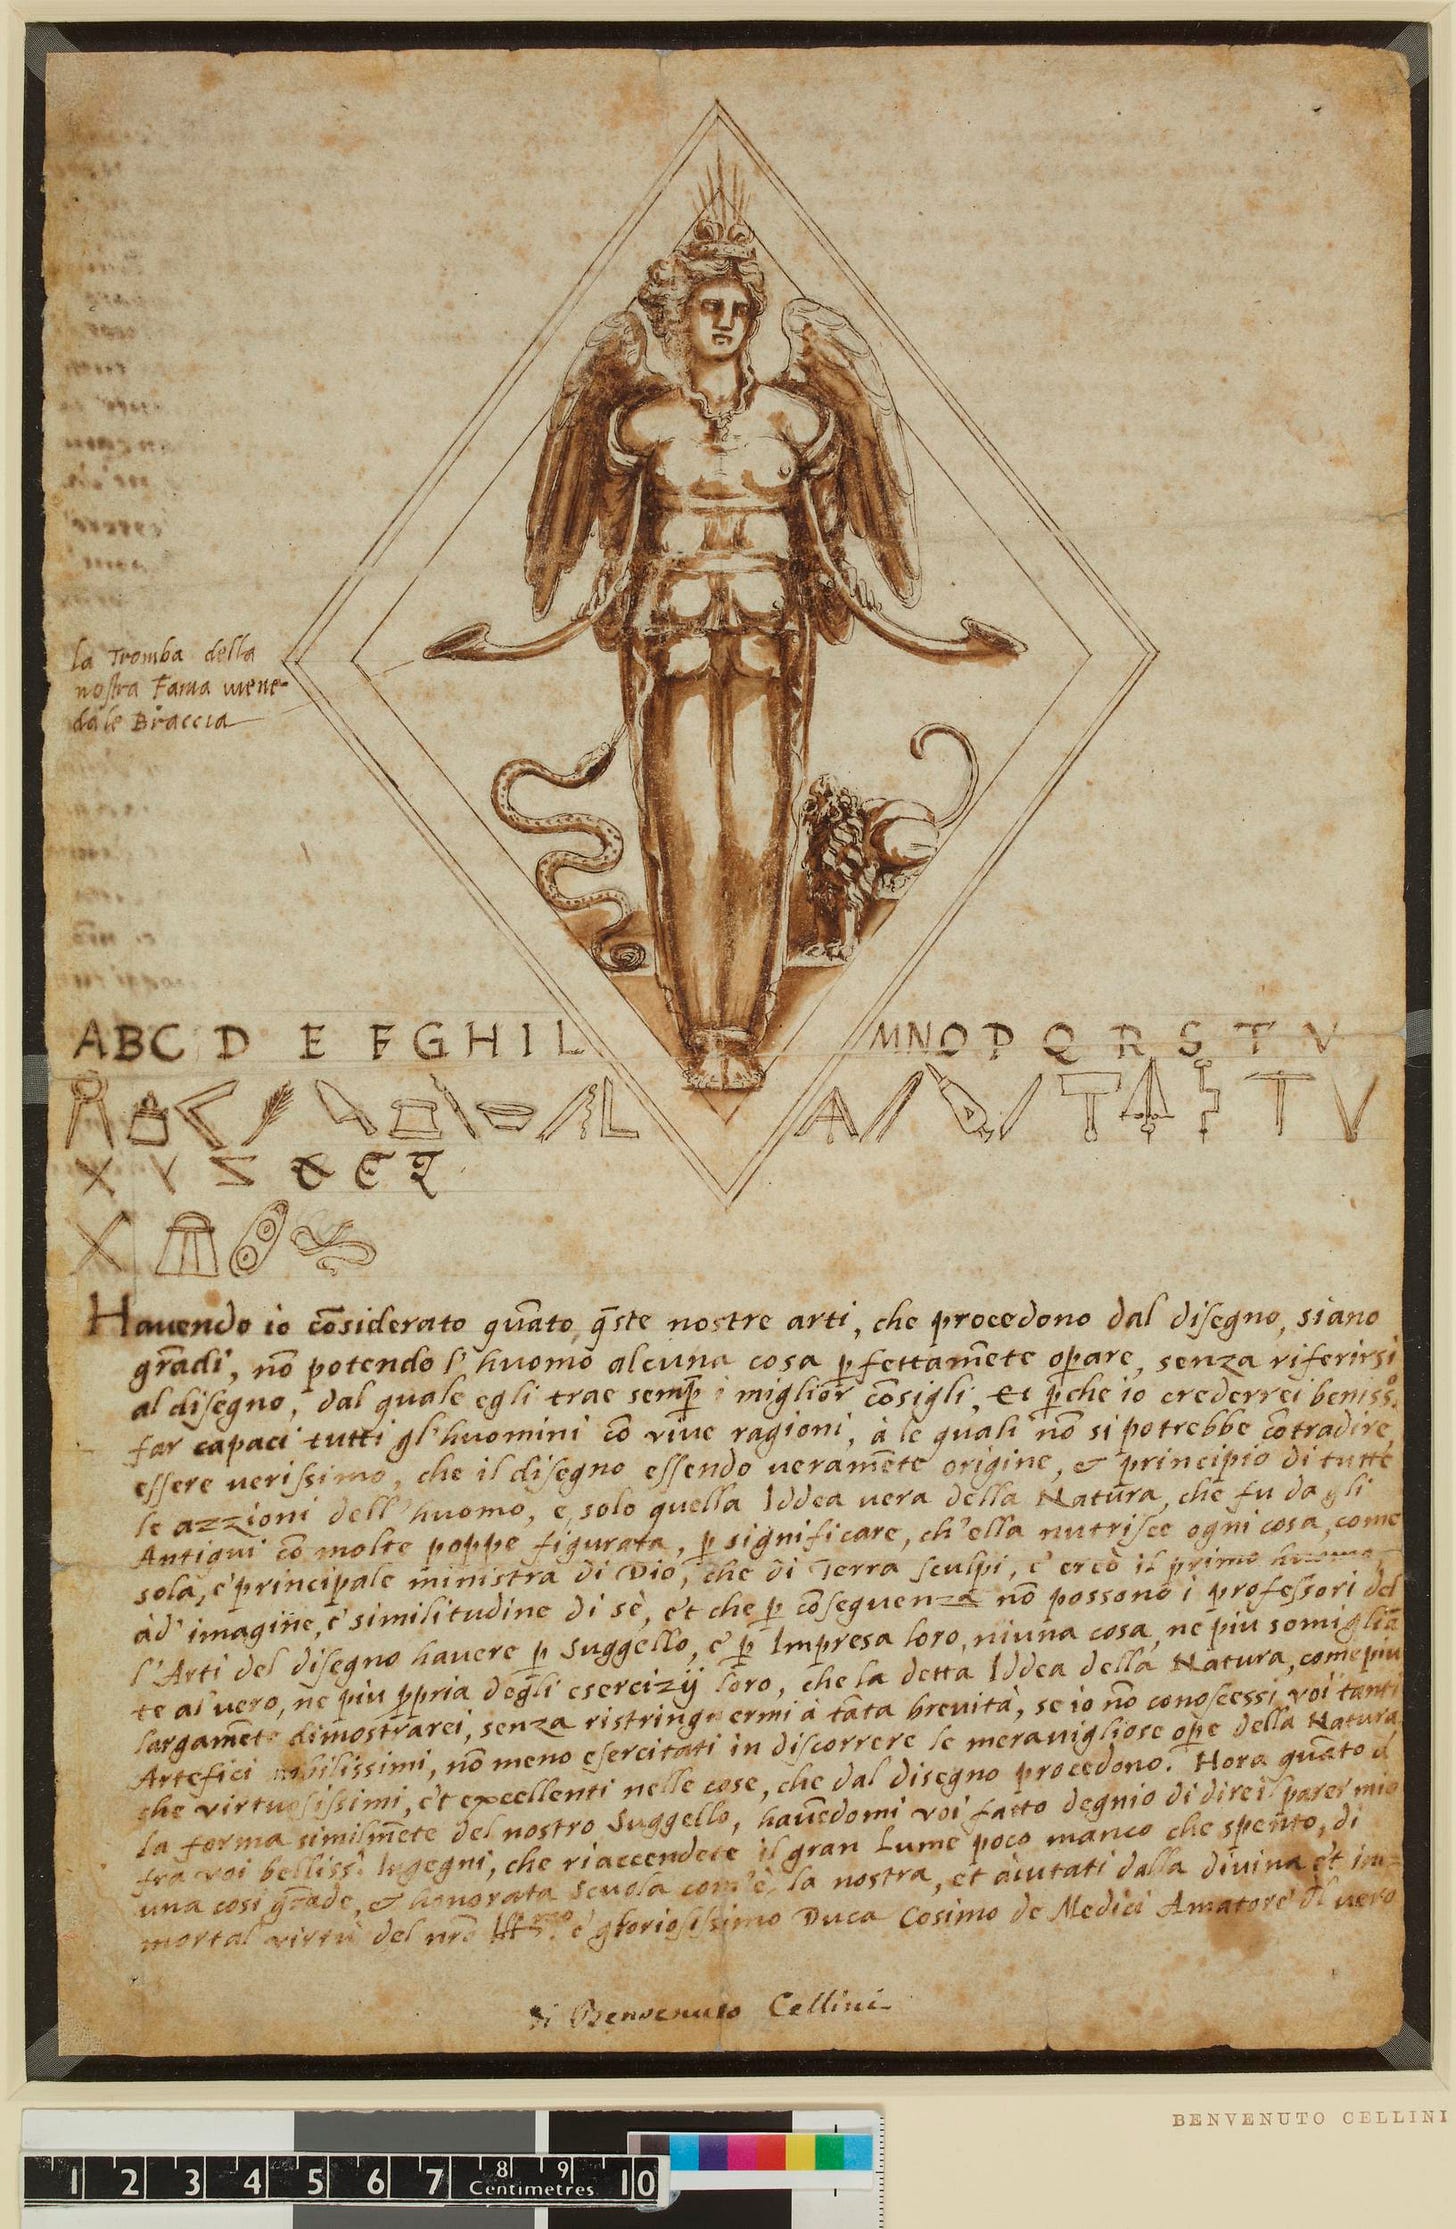 la Tromba della
nostra Fama viene
da le Braccia
A B C D E F G H I L M N O P Q R S T V
X Y Z
Havendo io cōsiderato quāto q̄ste nostre arti, che procedono dal disegno, siano
grādi, nō potendo l'huomo alcuna cosa p̱fettamēte op̱are, senza riferirsi
al disegno, dal quale egli trae semp̱ i miglior cōsigli, Et p̱che io crederrei beniss.º
far capaci tutti gl'huomini cō vive ragioni, à le quali nō si potrebbe cōtradire,
essere verissimo, che il disegno essendo veramēte origine, & principio di tutte
le azzioni dell'huomo, e solo quella Iddea vera della Natura, che fu dagli
Antiqui cō molte poppe figurata, p̱ significare, ch'ella nutrisce ogni cosa, come
sola, e' principale ministra di Dio, che di Terra sculpi, e' creò il primo huomo,
ad' imagine, e' similitudine di sè, et che p̱ cōseguenza nō possono i professori del
l'Arti del disegno havere p̱ Suggello, & p̱ Impresa loro, niuna cosa, ne piu somigliā
te al vero, ne piu p̱pria degli esercizij loro, che la detta Iddea della Natura, come piu
largamēte dimostrarei, senza ristringnermi à tāta brevità, se io nō conoscessi voi tanti
Artefici nobilissimi, nō meno esercitati in discorrere le meravigliose op̱e della Natura
che virtuosissimi, et excellenti nelle cose, che dal disegno procedono. Hora quāto à
la forma similmēte del nostro Suggello, havēdomi voi fatto degnio di dire il parer mio
fra voi belliss.i Ingegni, che riaccendete il gran Lume poco manco che spento, di
una cosi grāde, & honorata Scuola com'è la nostra, et aiutati dalla divina et im=
mortal virtù del nrō Ill.mo e' gloriosissimo Duca Cosimo de Medici Amatore il vero
di Benvenuto Cellini
BENVENUTO CELLINI
1 2 3 4 5 6 7 8 9 10
Centimetres